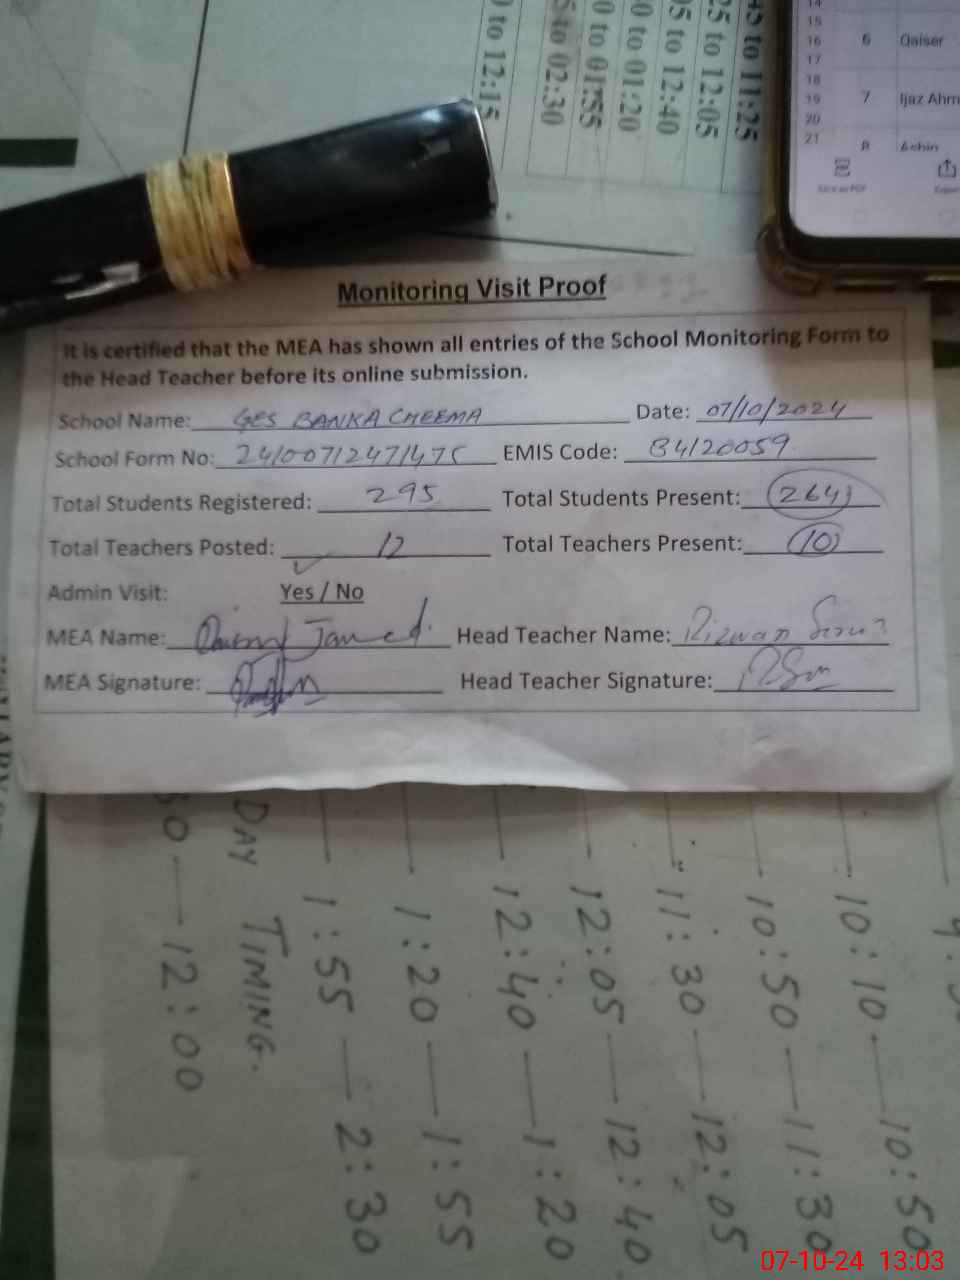 0 to 12:15
to 02:30
0 to 01:55
0 to 01:20
05 to 12:40
25 to 12:05
45 to 11:25
14
15
16 6 Qaiser
17
18
19 7 Ijaz Ahm
20
21 8
Monitoring Visit Proof
It is certified that the MEA has shown all entries of the School Monitoring Form to
the Head Teacher before its online submission.
School Name: GES BANKA CHEEMA Date: 07/10/2024
School Form No: 24/007/247/475 EMIS Code: 34120059
Total Students Registered: 295 Total Students Present: 264
Total Teachers Posted: 12 Total Teachers Present: 10
Admin Visit: Yes / No
MEA Name: Head Teacher Name: Rizwan
MEA Signature: Head Teacher Signature:
DAY TIMING.
50 — 12:00
1:55 — 2:30
1:20 — 1:55
12:40 — 1:20
12:05 — 12:40
11:30 — 12:05
10:50 — 11:30
10:10 — 10:50
07-10-24 13:03